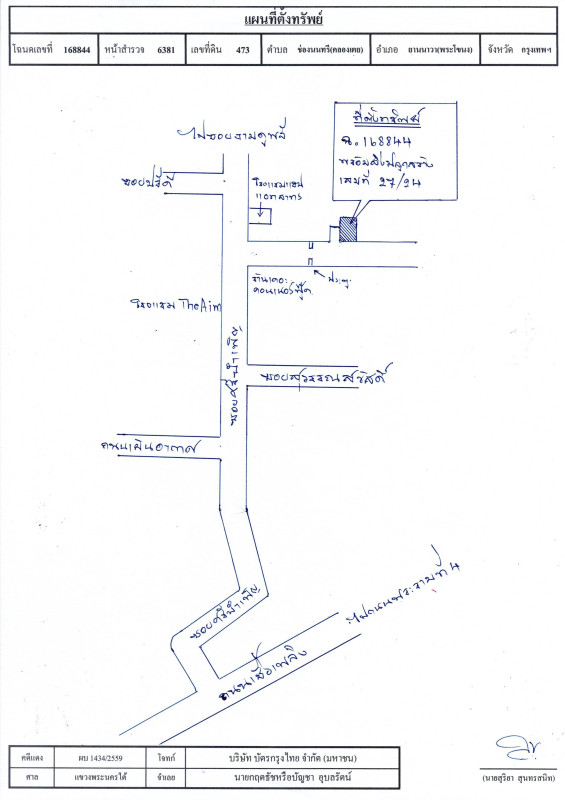 แผนที่ตั้งทรัพย์
โฉนดเลขที่ 168844 หน้าสำรวจ 6381 เลขที่ดิน 473 ตำบล ช่องนนทรี(คลองเตย) อำเภอ ยานนาวา(พระโขนง) จังหวัด กรุงเทพฯ
ที่ตั้งทรัพย์
ฉ.168844
พร้อมสิ่งปลูกสร้าง
เลขที่ 27/94
ไปซอยงามดูพลี
ซอยปรีดี
โรงแรมแอม
แอทสาทร
ประตู
โรงแรม The Aim
ซอยศรีบำเพ็ญ
ซอยสุวรรณสวัสดิ์
ถนนเย็นอากาศ
ซอยศรีบำเพ็ญ
ไปถนนพระรามที่ 4
ถนนเชื้อเพลิง
คดีแดง ผบ 1434/2559 โจทก์ บริษัท บัตรกรุงไทย จำกัด (มหาชน)
ศาล แขวงพระนครใต้ จำเลย นายกฤตธัชหรือบัญชา อุบลรัตน์
(นายสุริยา สุนทรสนิท)